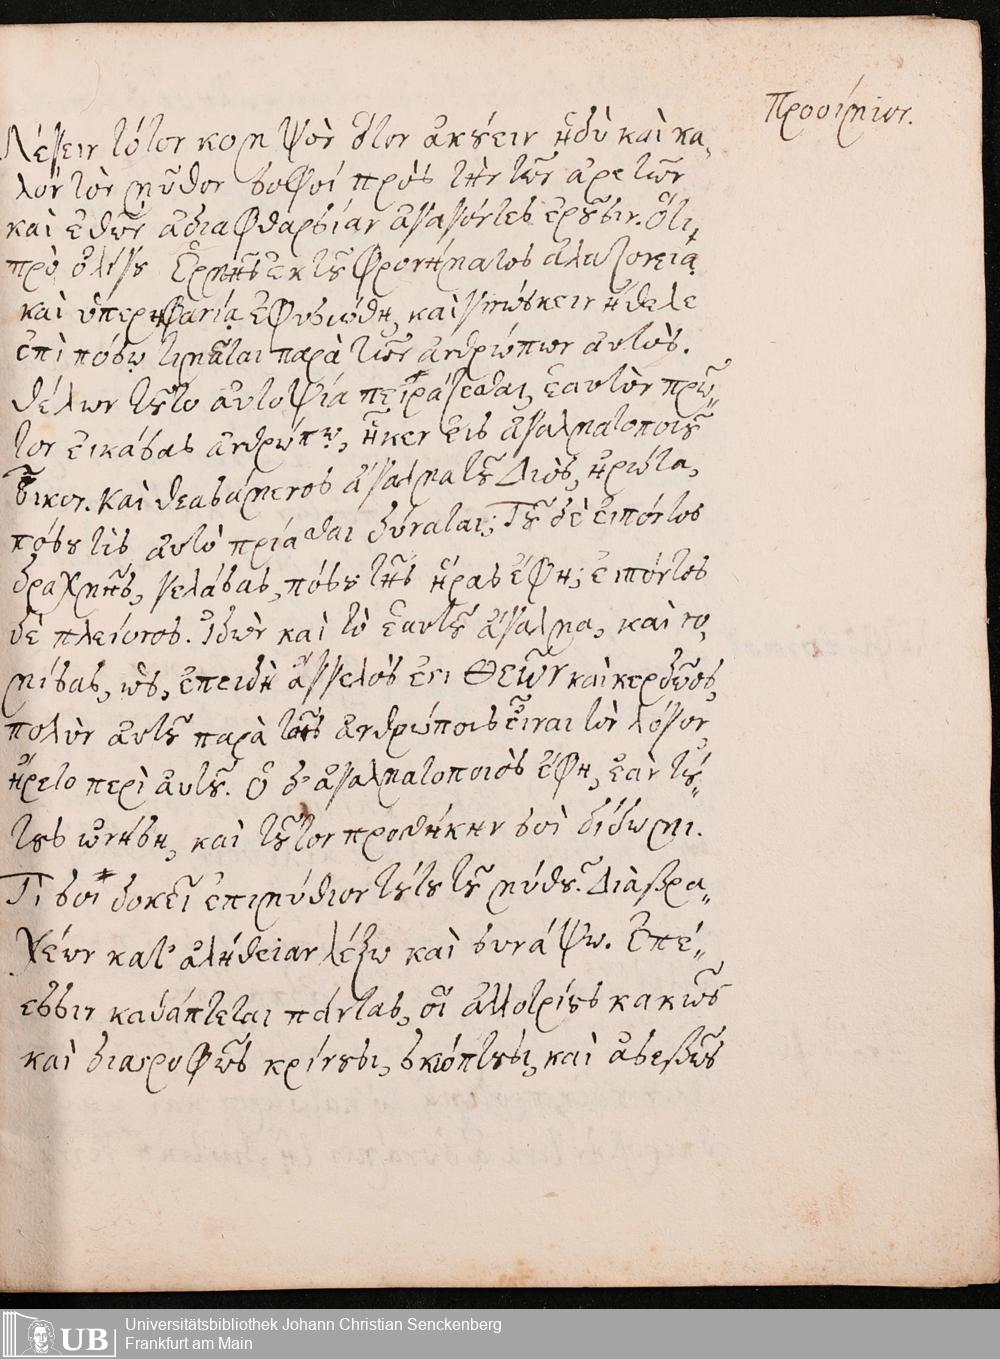 Προοίμιον.
Λέγειν τότον κομψὸν ὅτον ἀκούειν ἡδὺ καὶ κα„
λὸν τὸν μῦθον σοφοί πρὸς τὴν τῶν ἀρετῶν
καὶ ἐθῶν ἀδιαφθαρσίαν ἀγαγόντες ἐροῦσιν. Ὅτι
πρὸ ὀλίγου Ἑρμῆς ἐκ τοῦ φρονήματος ἀλαζονείᾳ
καὶ ὑπερηφανίᾳ ἐφυσιώθη, καὶ γινώσκειν ἤθελε
ἐπὶ πόσῳ τιμᾶται παρὰ τῶν ἀνθρώπων αὐτὸς.
θέλων τοῦτο αὐτοψίᾳ πειράζεσθαι, ἑαυτὸν πρῶ„
τον εἰκάσας ἀνθρώπῳ, ἧκεν εἰς ἀγαλματοποιοῦ
οἶκον. Καὶ θεασάμενος ἄγαλμα τοῦ Διὸς, ἠρώτα,
πόσου τὶς αὐτὸ πρίασθαι δύναται; Τοῦ δὲ εἰπόντος
δραχμῆς, γελάσας, πόσου τῆς ἥρας ἔφη; εἰπόντος
δὲ πλείονος. Ἰδὼν καὶ τὸ ἑαυτοῦ ἄγαλμα, καὶ νο„
μίσας, ὡς, ἐπειδὴ ἄγγελός ἐστι θεῶν καὶ κερδῷος,
πολὺν αὐτοῦ παρὰ τοῖς ἀνθρώποις εἶναι τὸν λόγον,
ἤρετο περὶ αὐτοῦ. Ὁ δ' ἀγαλματοποιὸς ἔφη, ἐὰν τού„
τους ὠνήσῃ, καὶ τοῦτον προσθήκην σοὶ δίδωμι.
Τί σοι δοκεῖ ἐπιμύθιον τούτου τοῦ μύθου; Διὰ βρα„
χέων κατ' ἀλήθειαν λέξω καὶ συνάψω. Ἐπέ„
εσσιν καθάπτεται πάντας, οἳ ἀλλοτρίους κακῶς
καὶ διαστρόφως κρίνουσι, σκώπτουσι, καὶ ἀσεβῶς
UB Universitätsbibliothek Johann Christian Senckenberg
Frankfurt am Main